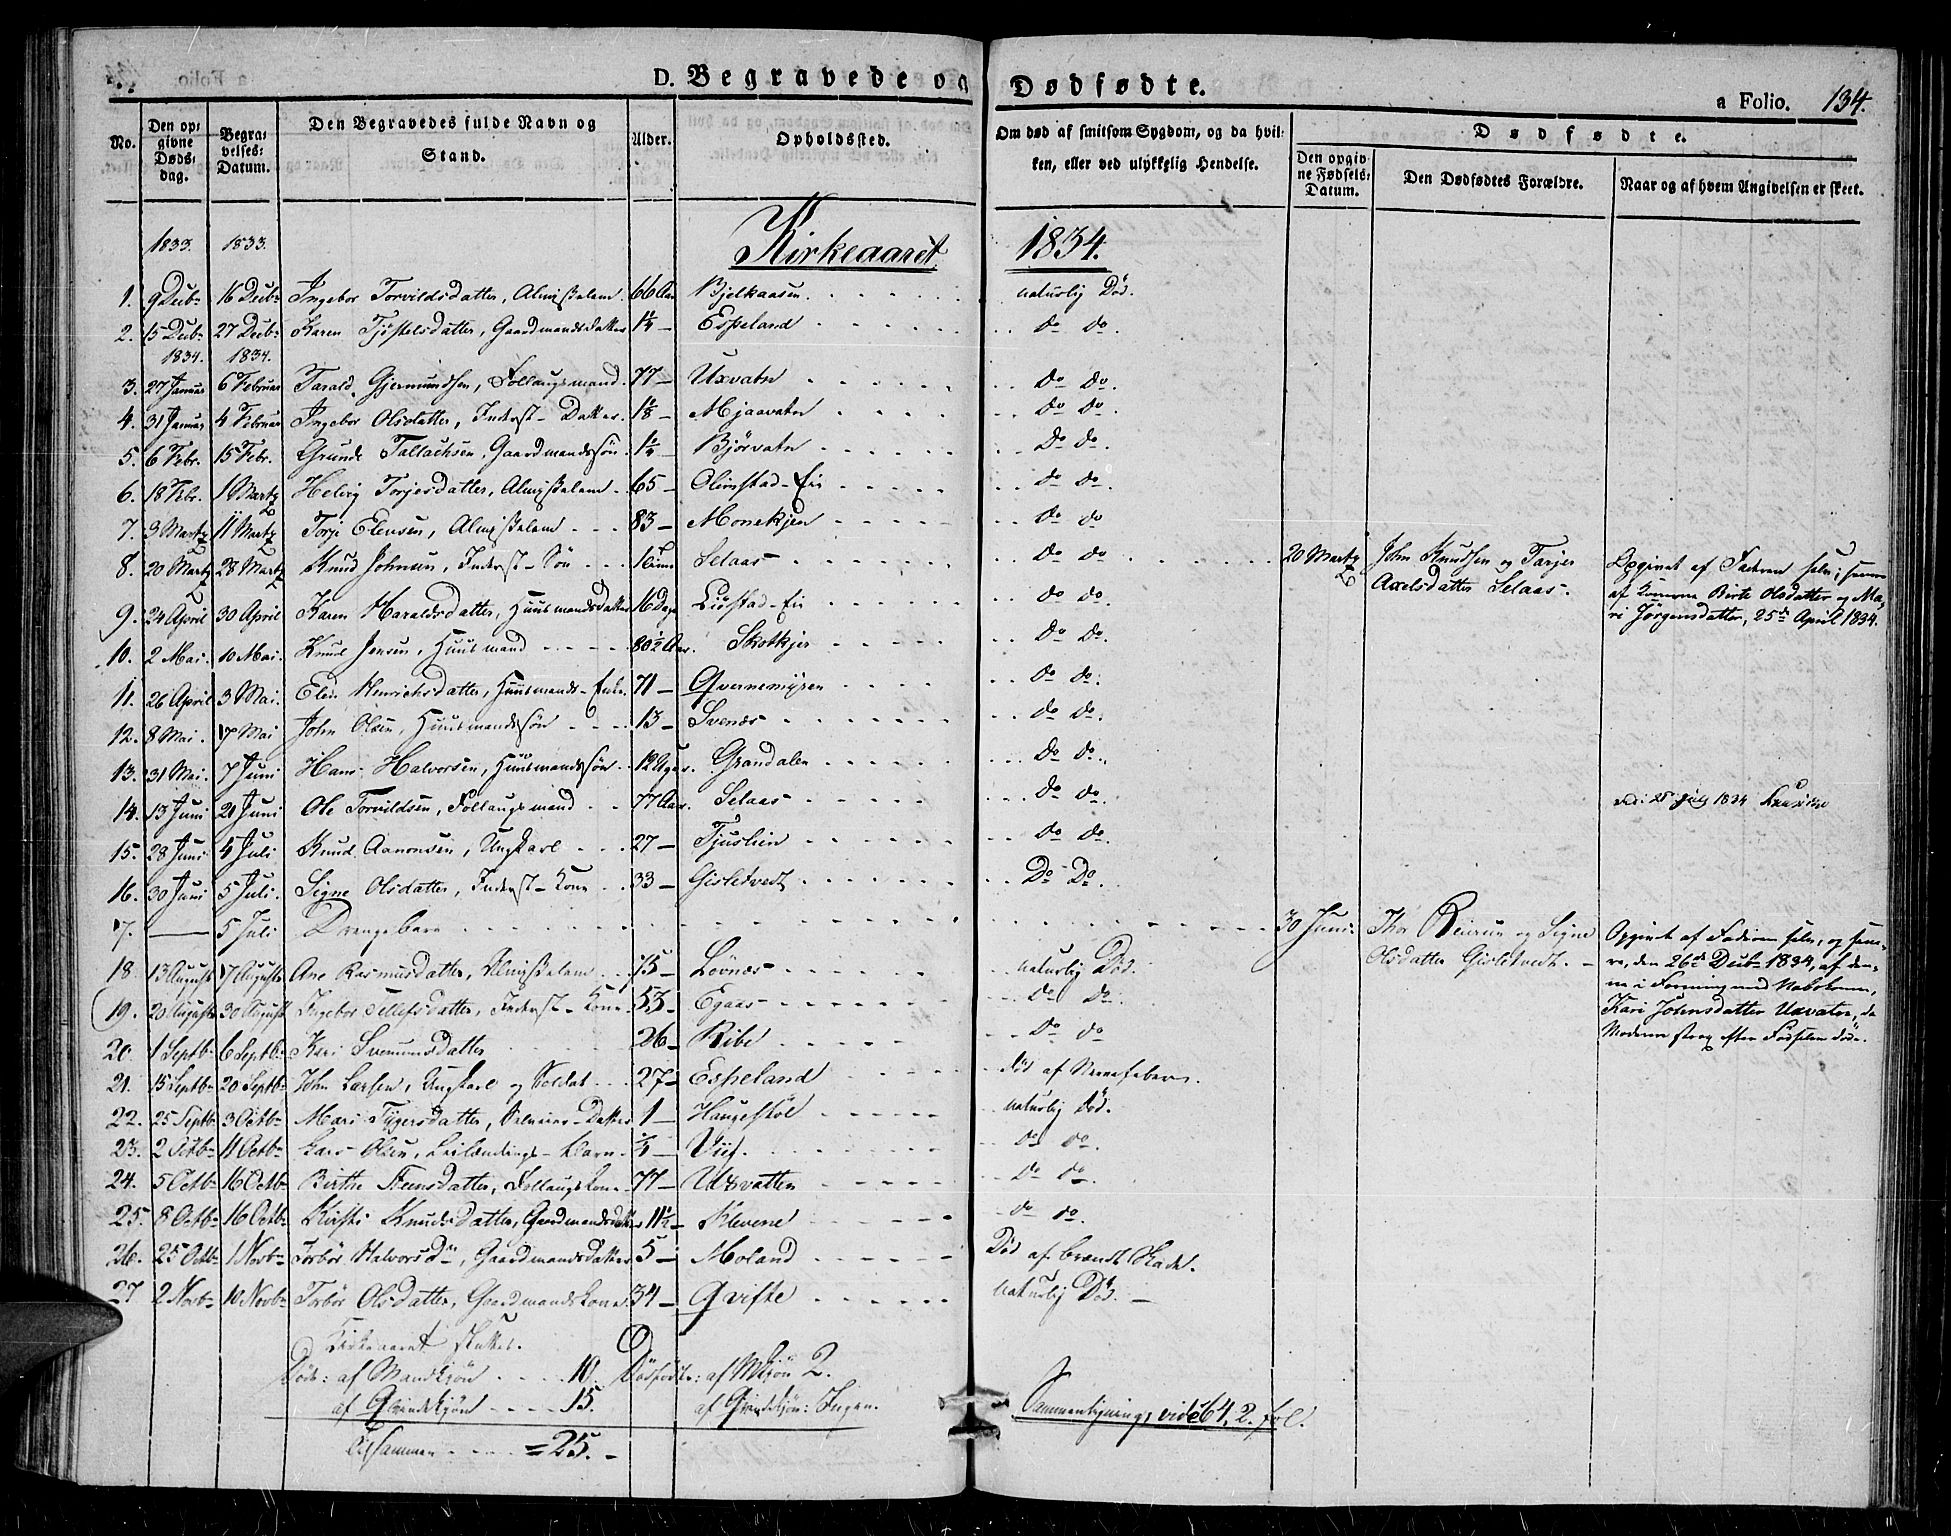 D. Begravede og Dødfødte.
a Folio. 134.
No. Den opgivne Dødsdag. Begravelses-Datum. Den Begravedes fulde Navn og Stand. Alder. Opholdssted. Om død af smitsom Sygdom, og da hvilken, eller ved ulykkelig Hendelse. Dødfødte. Den opgivne Fødsels-Datum. Den Dødfødtes Forældre. Naar og af hvem Angivelsen er skeet.
1833. 1833. Kirkeaaret 1834.
1. 9 Decbr 16 Decbr Ingebor Torvildsdatter, Almisselem 66 Aar Bjelkaasen naturlig Død.
2. 15 Decbr 27 Decbr Karen Tjøstelsdatter, Gaardmandsdatter 1¼ - Espeland do do.
1834. 1834.
3. 27 Januar 6 Februar Tarald Gjermundsen, Follaugsmand 77 - Uxvatn do do.
4. 31 Januar 4 Februar Ingebor Olsdatter, Inderst-Datter 1⅛ - Mjaavatn do do.
5. 6 Febr. 15 Febr. Grunde Tallachsen, Gaardmandssøn 1¼ - Bjørvatn Do Do.
6. 18 Febr. 1 Martz Helvig Torjesdatter, Almisselem 65 - Olimstad-Eie do do.
7. 3 Martz 11 Martz Torje Elensen, Almisselem 83 - Monekjen do do
8. 20 Martz 28 Martz Knud Johnsen, Inderst-Søn Selaas do do. 20 Martz John Knudsen og Tarjer Axelsdatter Selaas. Opgivet af Faderen selv; senere af Konerne Birte Olsdatter og Mari Jørgensdatter, 25de April 1834.
9. 24 April 30 April Karen Haraldsdatter, Huusmandsdatter 16 Dage Liøstad-Eie do do.
10. 2 Mai. 10 Mai. Knud Jensen, Huusmand 80½ Aar. Skotkjer Do Do.
11. 26 April 3 Mai. Elen Henrichsdatter, Huusmands-Enke 71 - Qvernemyren do do.
12. 8 Mai. 17 Mai John Olsen, Huusmandssøn 13 - Svenæs do do.
13. 31 Mai. 7 Juni Hans Halvorsen, Huusmandssøn 12 Uger. Grandalen do do.
14. 13 Juni 21 Juni Ole Torvildsen, Follaugsmand 77 Aar. Selaas do do.
15. 28 Juni 4 Juli Knud Aanonsen, Ungkarl 27 - Tjuslien do do.
16. 30 Juni 5 Juli. Signe Olsdatter, Inderst-Kone 33 - Gisletvedt Do Do.
17. — 5 Juli Drengebarn 30 Juni. Thor Reiersen og Signe Olsdatter Gisletvedt. Opgivet af Faderen selv, og senere, den 26de Decbr 1834, af denne i Forening med Nabokonen, Kari Johnsdatter Uxvatn, da Moderen strax efter Fødselen døde.
18. 13 August 17 August Ane Rasmusdatter, Almisselem Løvnæs naturlig Død.
19. 20 August 30 August Ingebor Tellefsdatter, Inderst-Kone 53 - Egaas do do.
20. 1 Septbr 6 Septbr Kari Svenumsdatter 26 - Ribe do do
21. 15 Septbr 20 Septbr John Larsen, Ungkarl og Soldat 27 - Espeland død af Nervefeber.
22. 25 Septbr 3 Octbr Mari Tygersdatter, Datter 1 - Haugestøl naturlig død.
23. 2 Octbr 11 Octbr Lars Olsen, Leilændings-Barn Viig. do do.
24. 5 Octbr 16 Octbr Birthe Steensdatter, Follaugskone 77 - Uxvatten do do.
25. 8 Octbr 16 Octbr Kirsti Knudsdatter, Gaardmandsdatter 11½ - Klevene do do.
26. 25 Octbr 1 Novbr Torbør Halvorsdr, Gaardmandsdatter 5 - Moland Død af brændt Skade.
27 2 Novbr 10 Novbr Torbør Olsdatter, Gaardmandskone 34 - Qvifte naturlig Død.
Kirkeaaret sluttes.
Døde: af Mandkjøn 10. Dødfødte: af Mkjøn 2.
af Qvindekjøn 15. af Qvindekjøn: Ingen.
Tilsammen = 25. Sammenligning, vide 64, 2. fol.